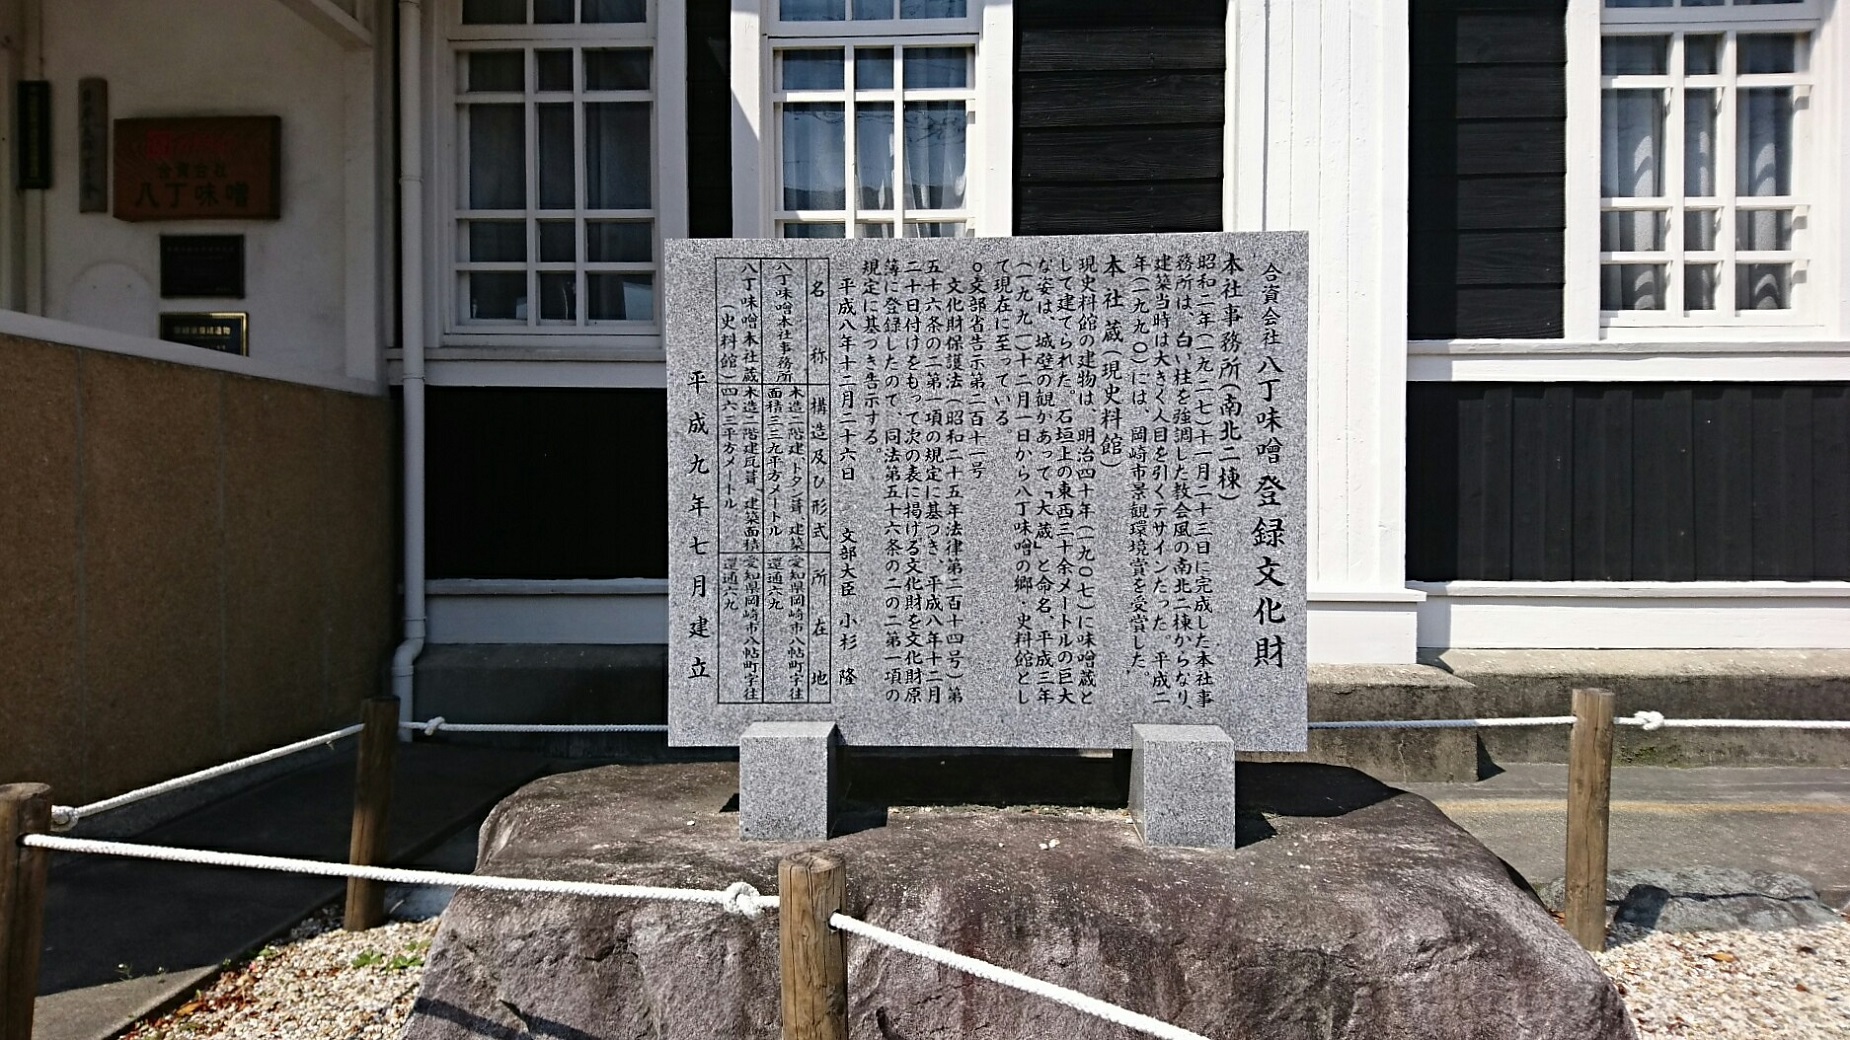 合資会社 八丁味噌登録文化財
本社事務所(南北二棟)
昭和二年(一九二七)十一月二十三日に完成した本社事
務所は、白い柱を強調した教会風の南北二棟からなり、
建築当時は大きく人目を引くデザインだった。平成二
年(一九九〇)には、岡崎市景観環境賞を受賞した。
本社蔵(現史料館)
現史料館の建物は、明治四十年(一九〇七)に味噌蔵と
して建てられた。石垣上の東西三十余メートルの巨大
な姿は、城壁の観があって「大蔵」と命名、平成三年
(一九九一)十二月一日から八丁味噌の郷・史料館とし
て現在に至っている。
○文部省告示第二百十一号
文化財保護法(昭和二十五年法律第二百十四号)第
五十六条の二第一項の規定に基づき、平成八年十二月
二十日付けをもって次の表に掲げる文化財を文化財原
簿に登録したので、同法第五十六条の二の二第一項の
規定に基づき告示する。
平成八年十二月二十六日 文部大臣 小杉 隆
名称 構造及び形式 所在地
八丁味噌本社事務所 木造二階建、トタン葺、建築 愛知県岡崎市八帖町字往
面積三三九平方メートル 還通六九
八丁味噌本社蔵 木造二階建瓦葺、建築面積 愛知県岡崎市八帖町字往
(史料館) 四六三平方メートル 還通六九
平成九年七月建立
合資会社
八丁味噌